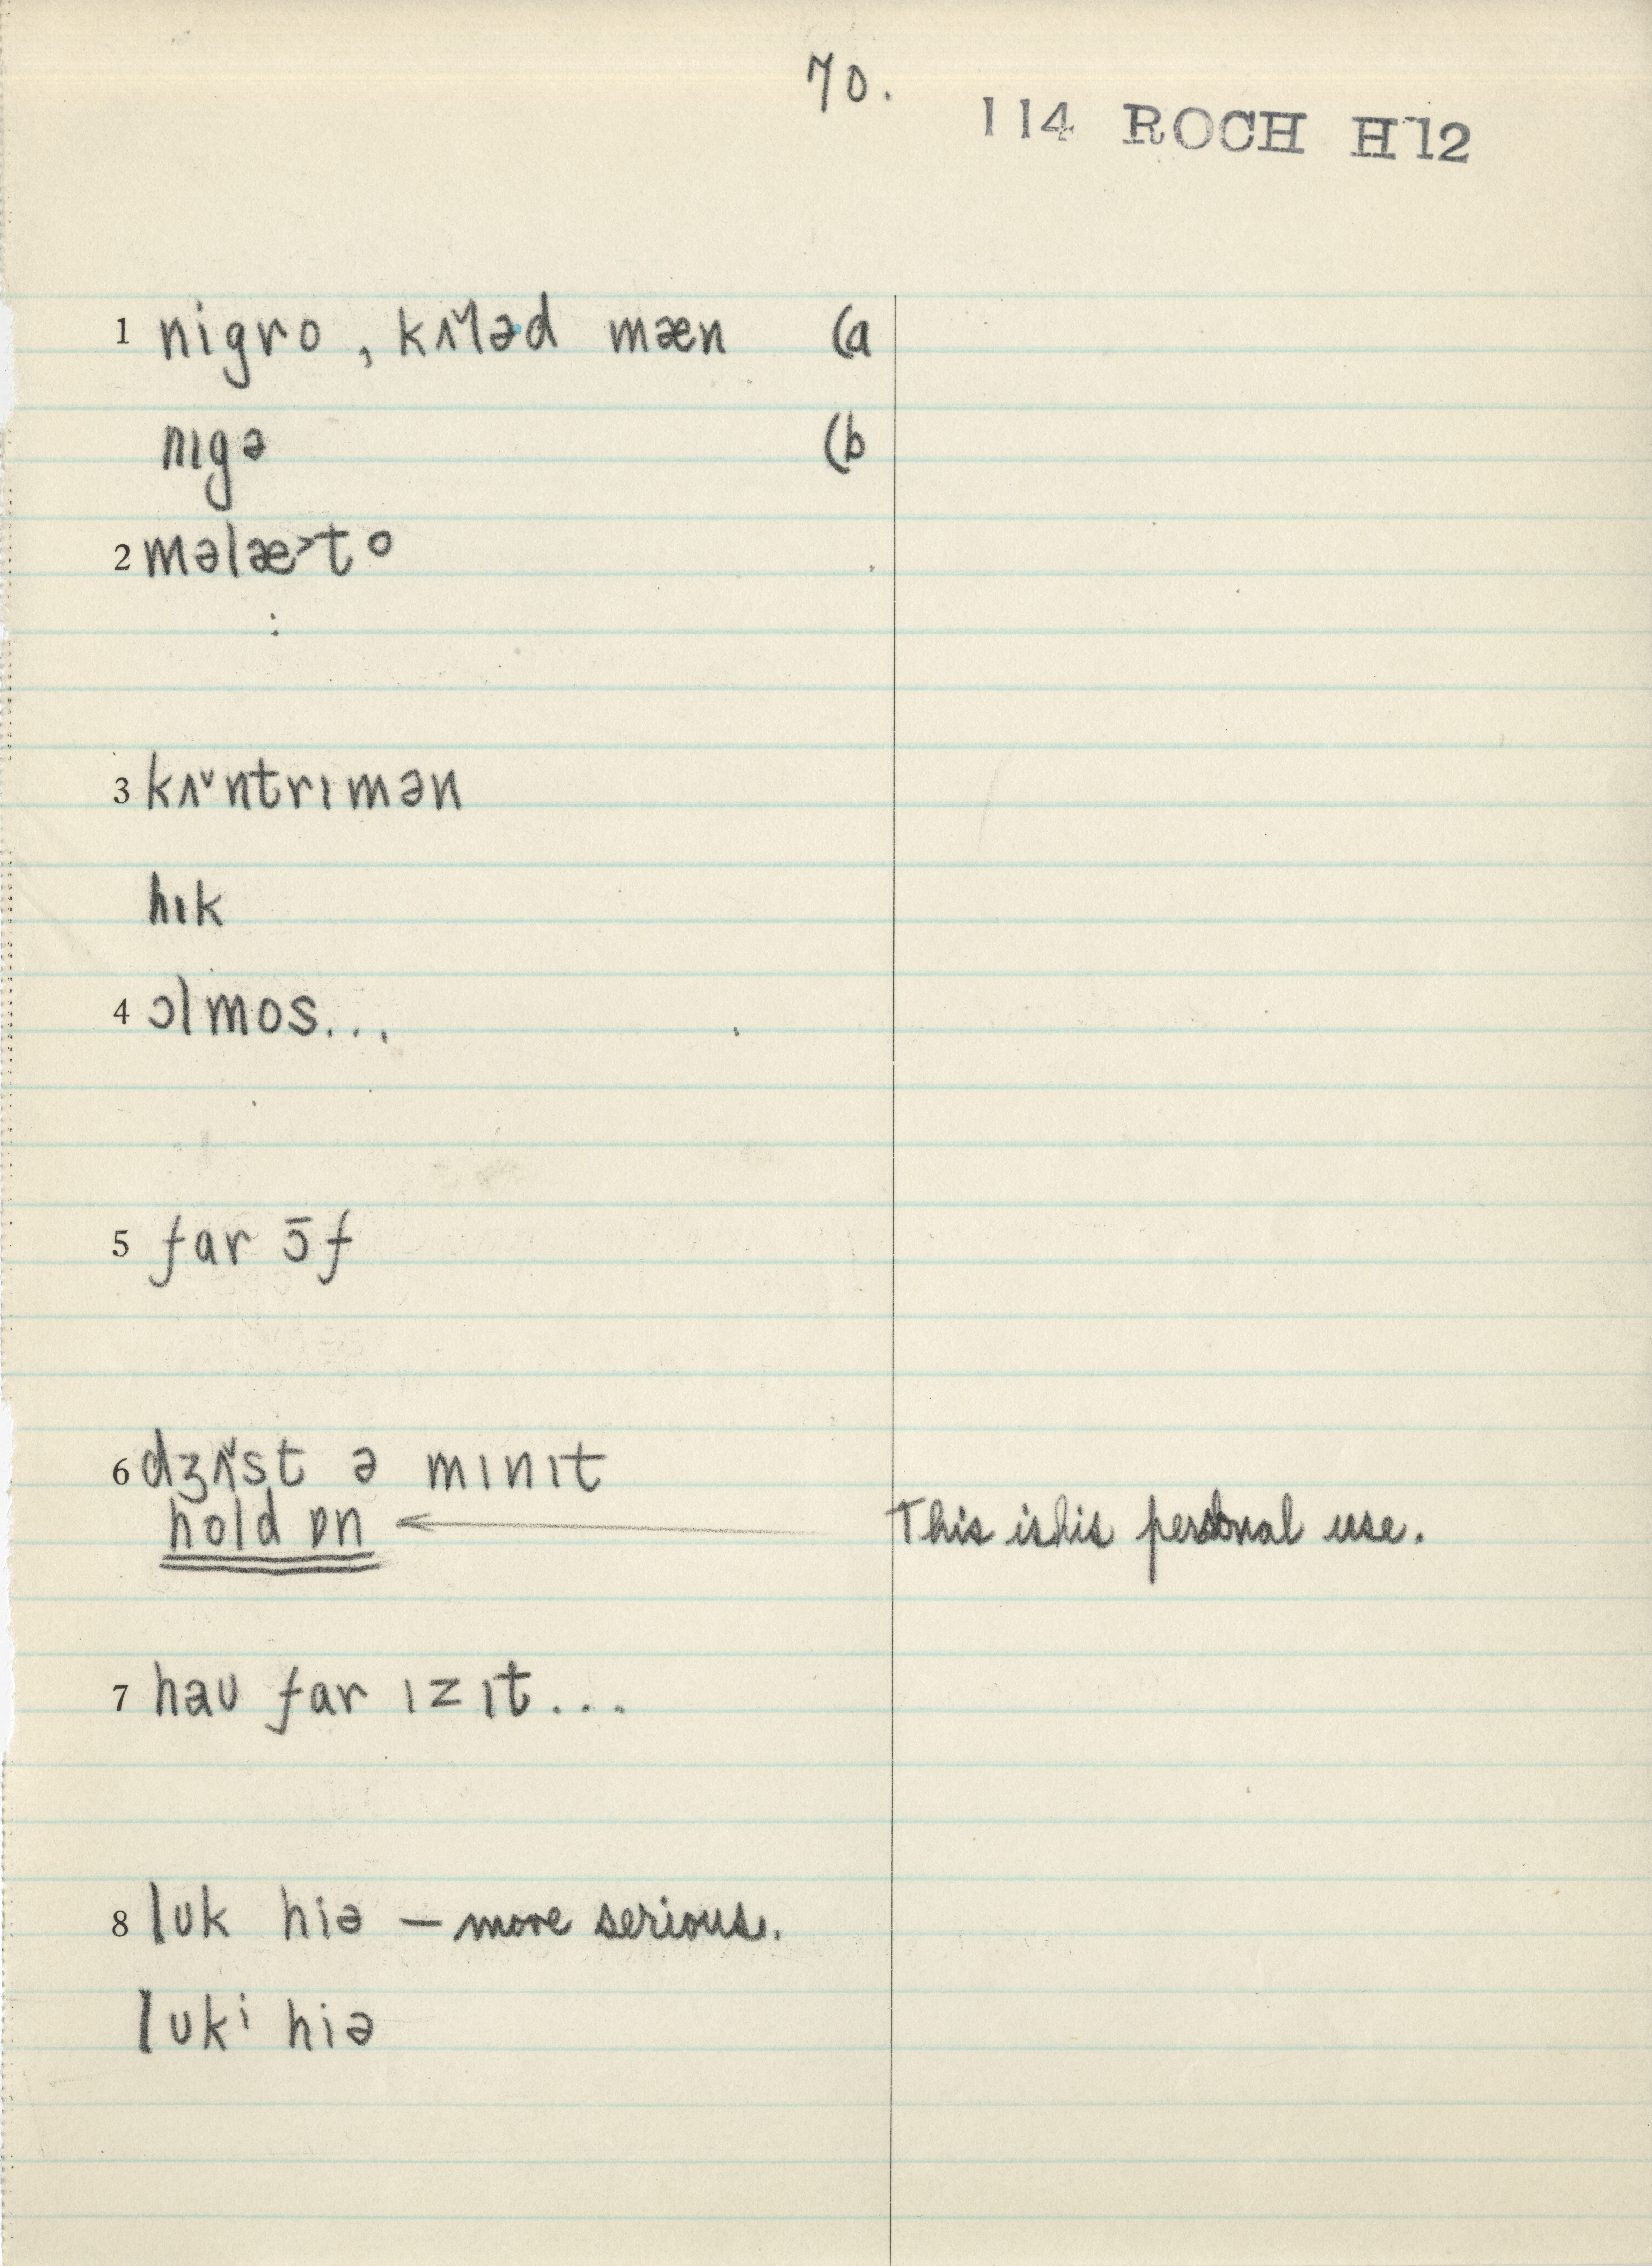 70.
114 ROCH H12
1 nigro, kʌ˅ləd mæn (a
nɪgə (b
2 məlæ˃to
3 kʌ˅ntrɪmən
hɪk
4 ɔlmos...
5 far ɔ̄f
6 dʒʌ˅st ə mɪnɪt
hold ɒn ← This is his personal use.
7 haʊ far ɪz ɪt...
8 lʊk hiə — more serious.
lʊkⁱ hiə